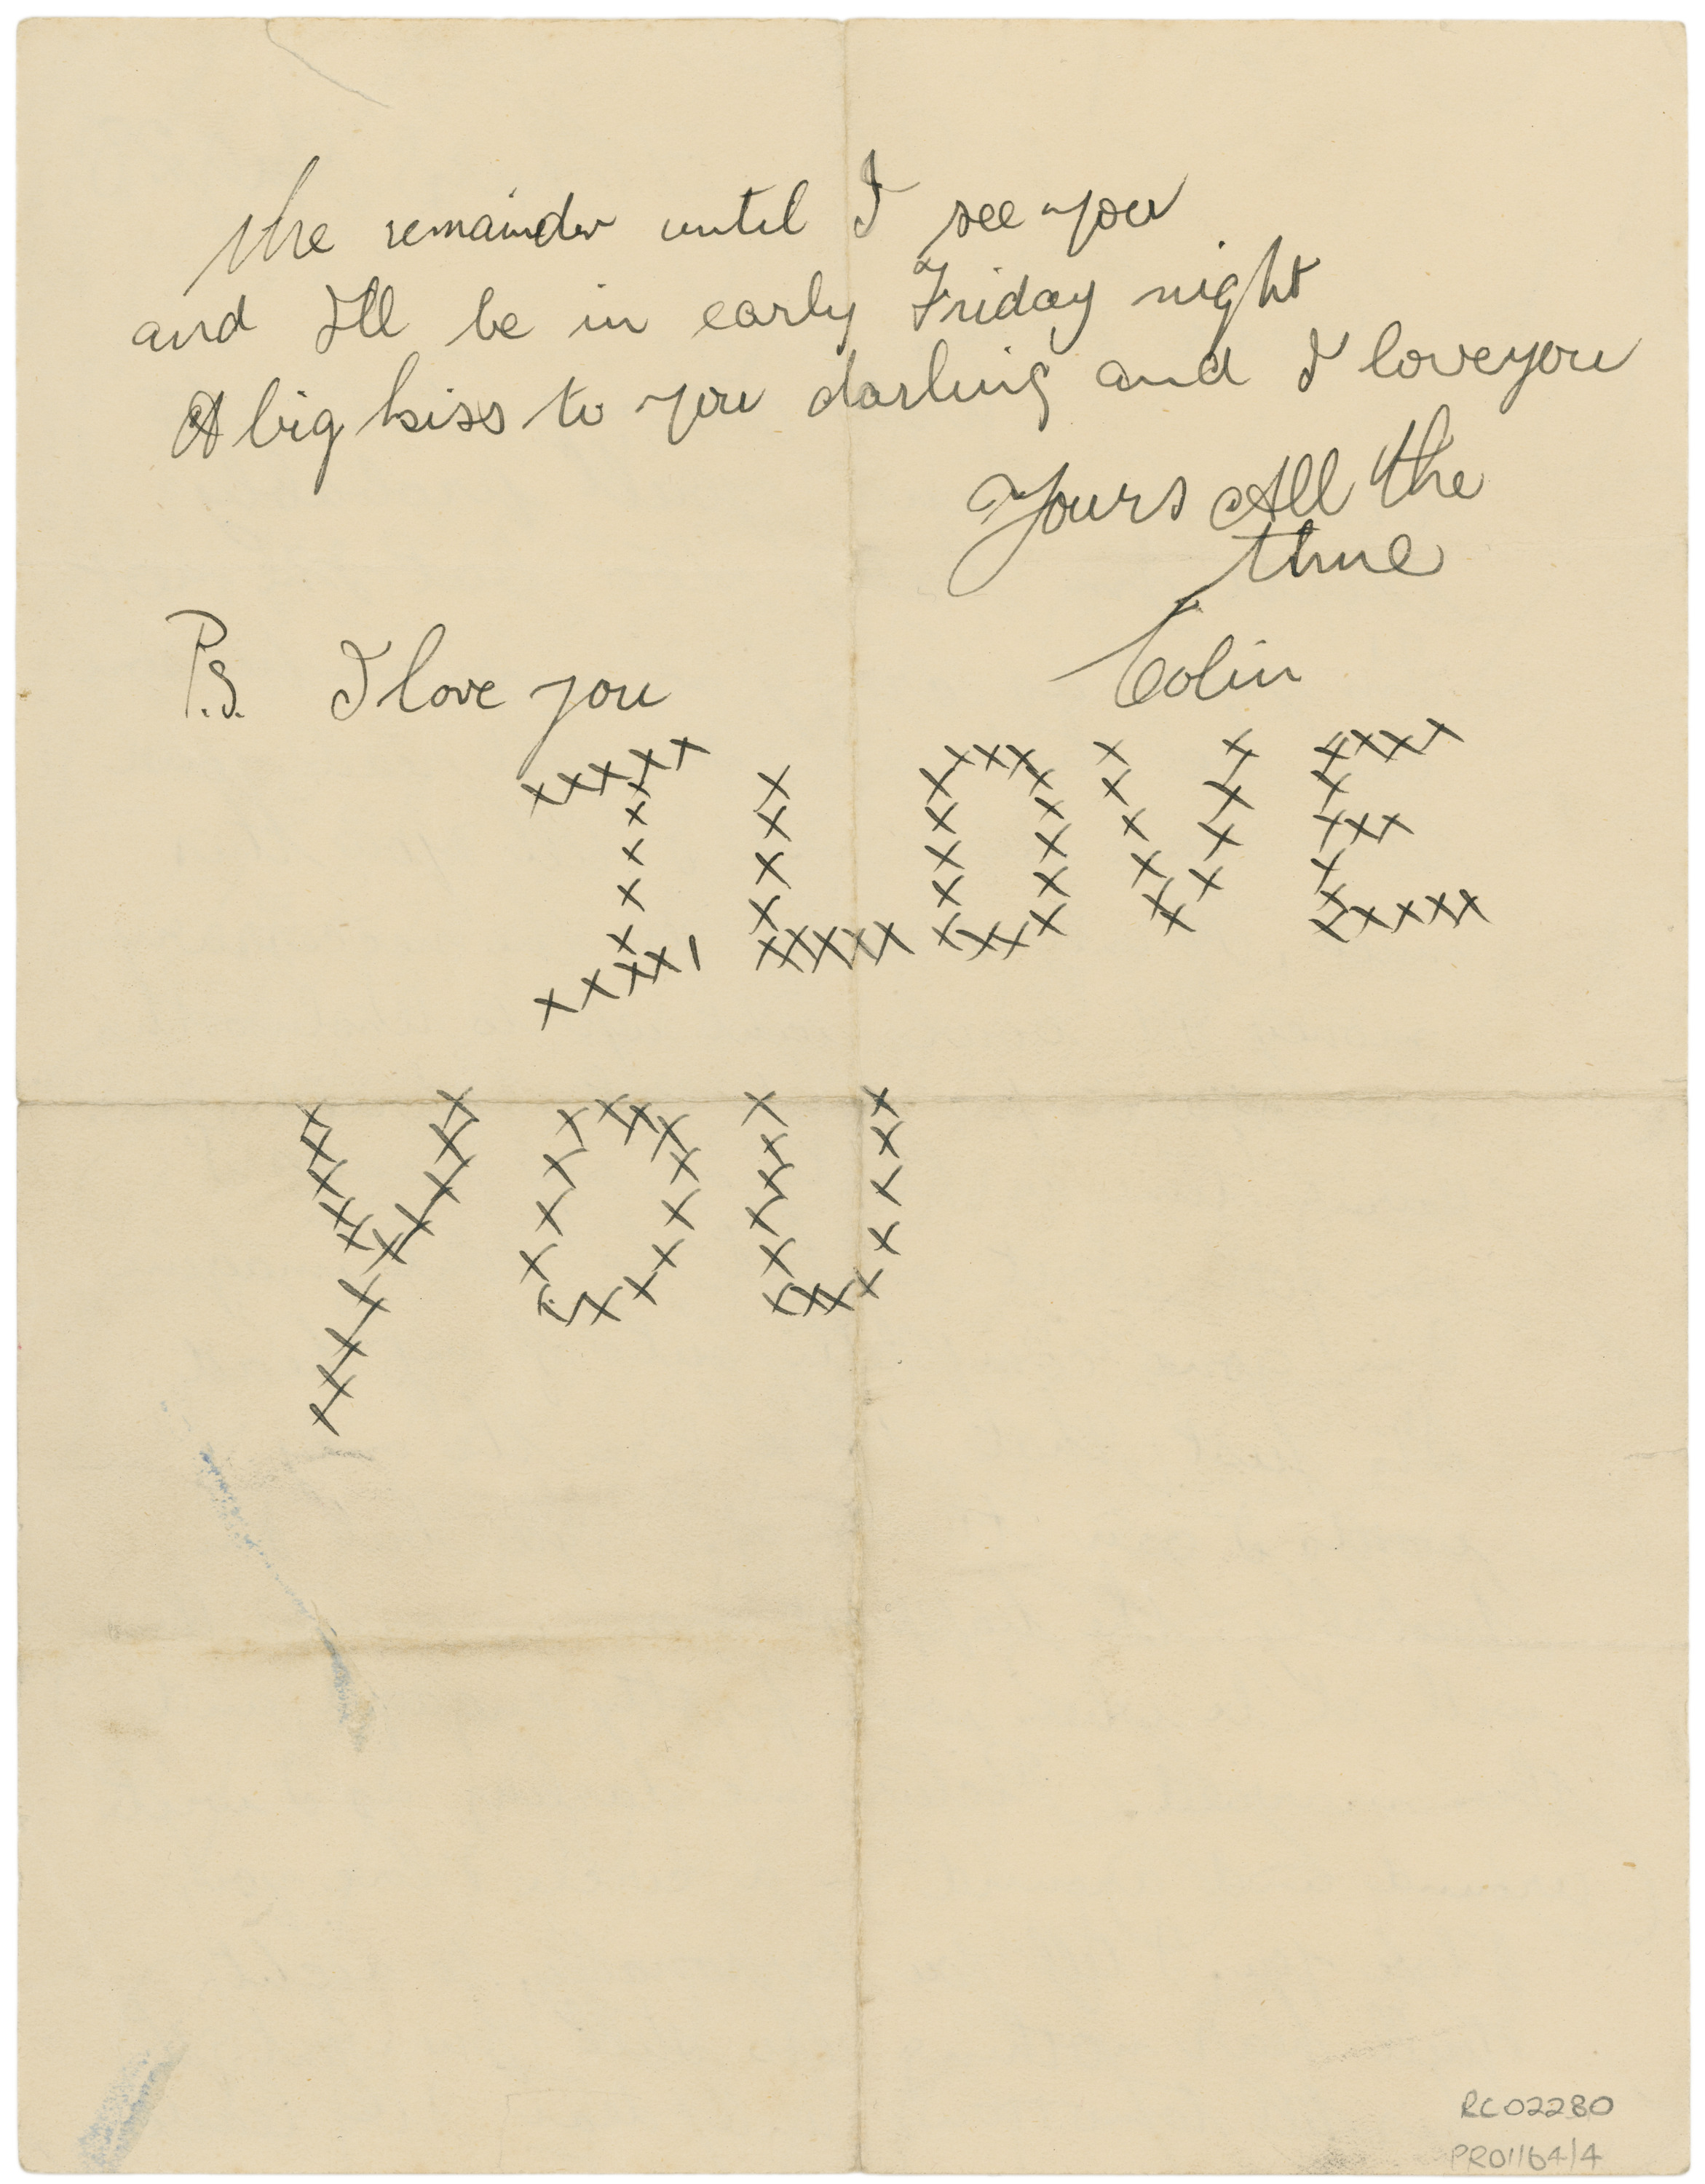 the remainder until I see you
and I'll be in early Friday night
A big kiss to you darling and I love you
Yours All the
time
Colin
P.S. I love you
I LOVE
YOU
RC02280
PR01164/4